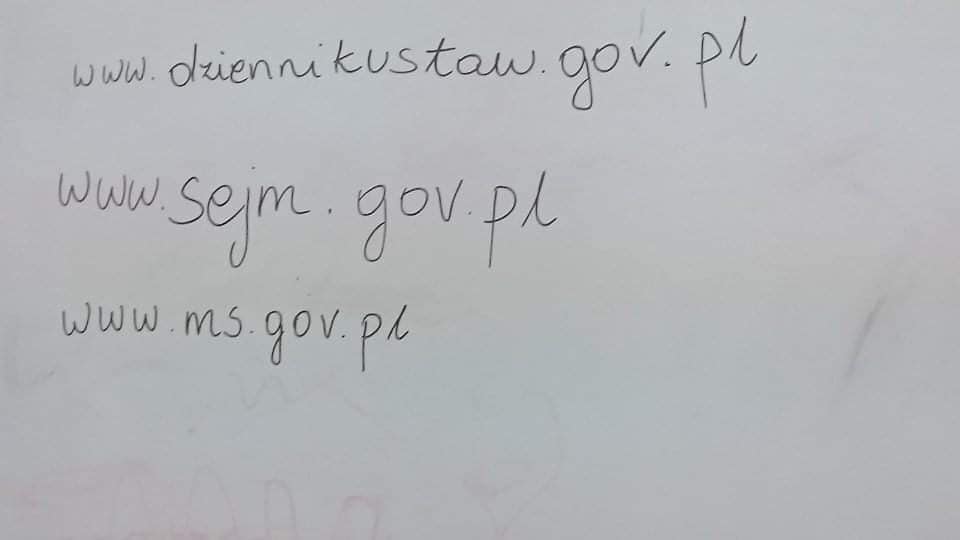 www.dziennikustaw.gov.pl
www.sejm.gov.pl
www.ms.gov.pl